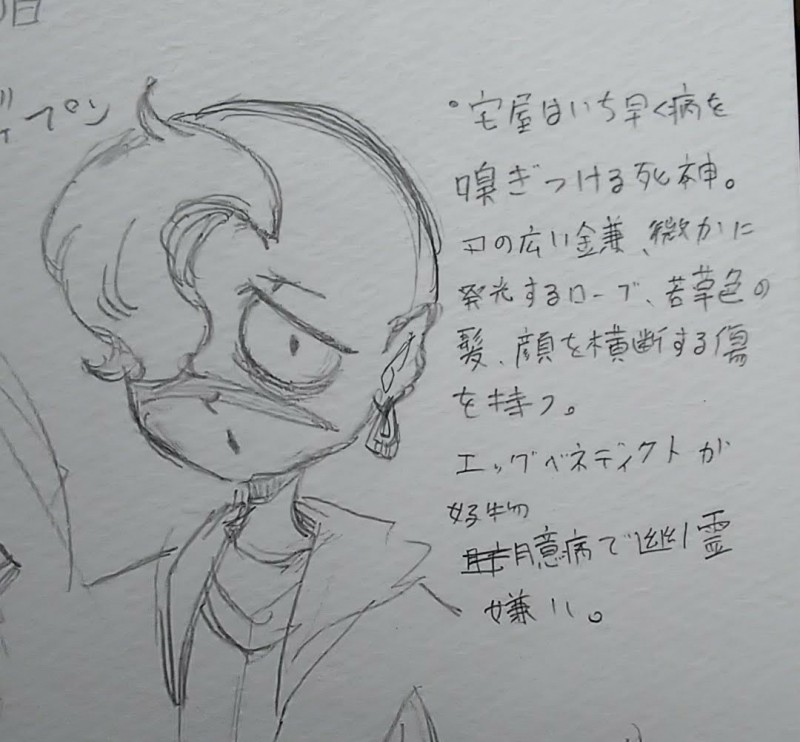 日
ィプン
・宅屋はいち早く病を
嗅ぎつける死神。
刃の広い鎌、微かに
発光するローブ、若草色の
髪、顔を横断する傷
を持つ。
エッグベネディクトが
好物
臆病で幽霊
嫌い。